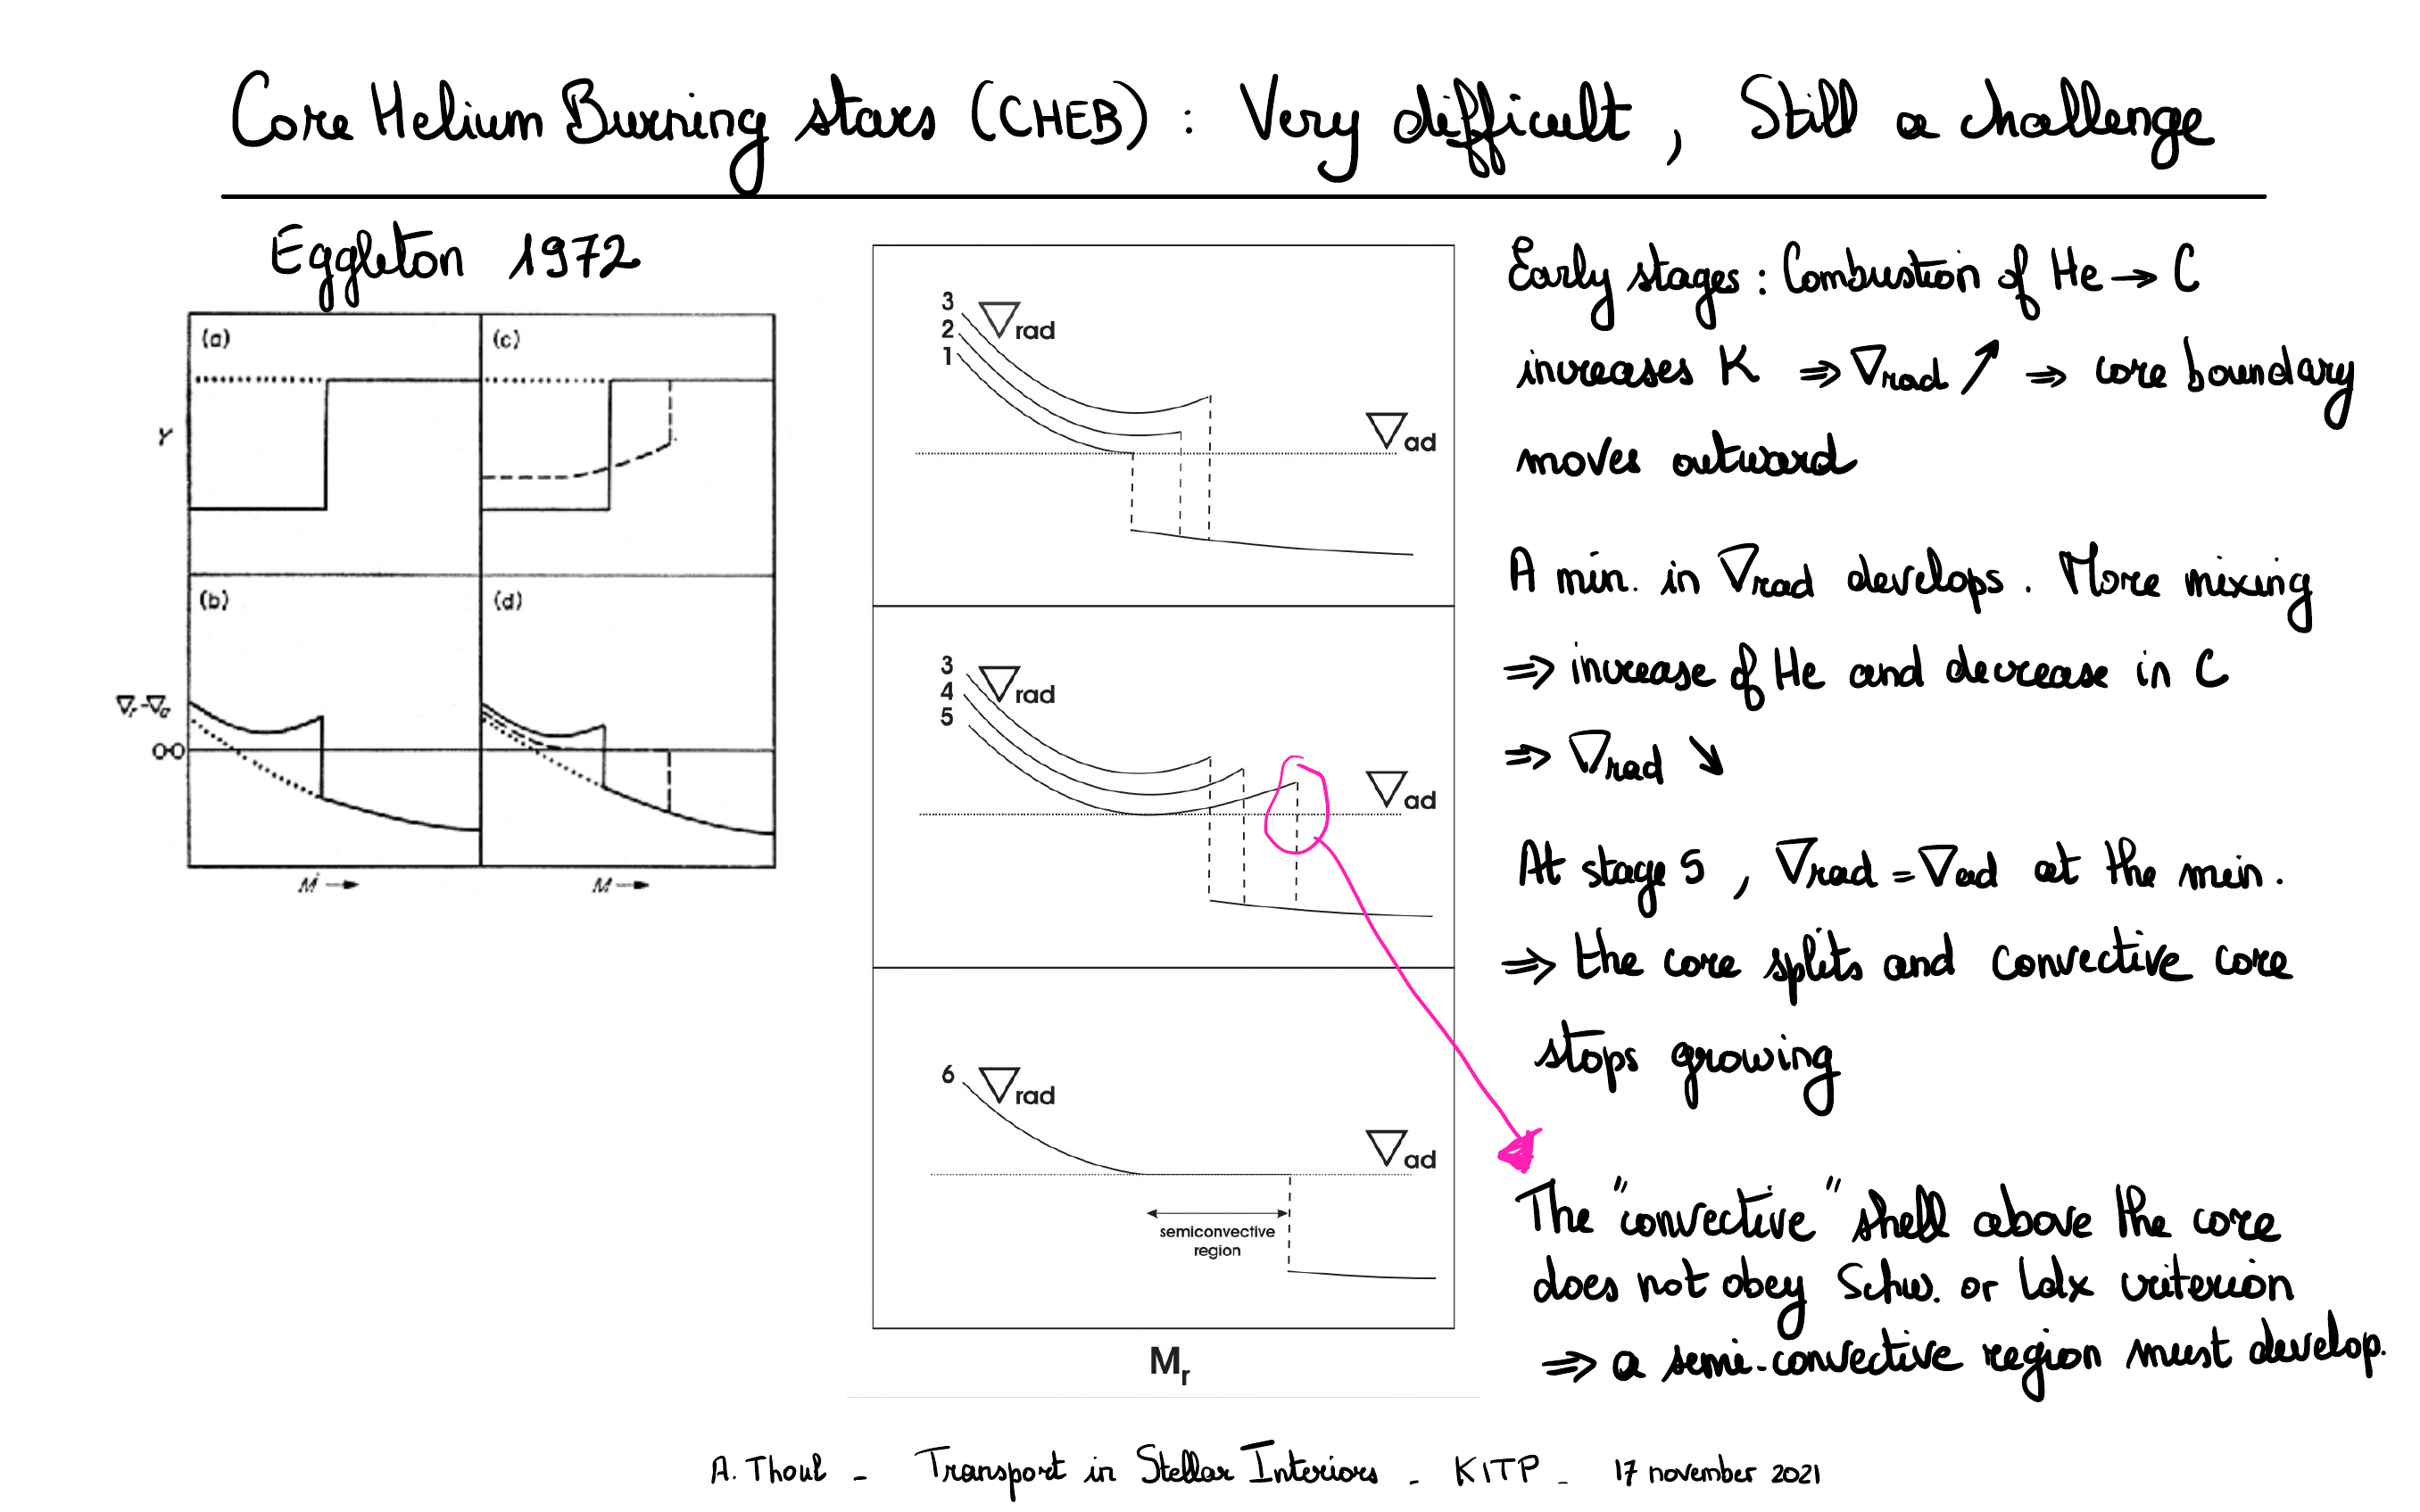 Core Helium Burning stars (CHEB) : Very difficult, Still a challenge
Eggleton 1972
(a)
(c)
Y
(b)
(d)
∇r-∇a
0·0
M →
M →
3
2
1
∇rad
∇ad
3
4
5
∇rad
∇ad
6
∇rad
∇ad
semiconvective
region
Mr
Early stages : Combustion of He → C
increases K ⇒ ∇rad ↗ ⇒ core boundary
moves outward
A min. in ∇rad develops. More mixing
⇒ increase of He and decrease in C
⇒ ∇rad ↘
At stage 5, ∇rad = ∇ad at the min.
⇒ the core splits and convective core
stops growing
The "convective" shell above the core
does not obey Schw. or Ldx criterion
⇒ a semi-convective region must develop.
A. Thoul - Transport in Stellar Interiors - KITP - 17 november 2021